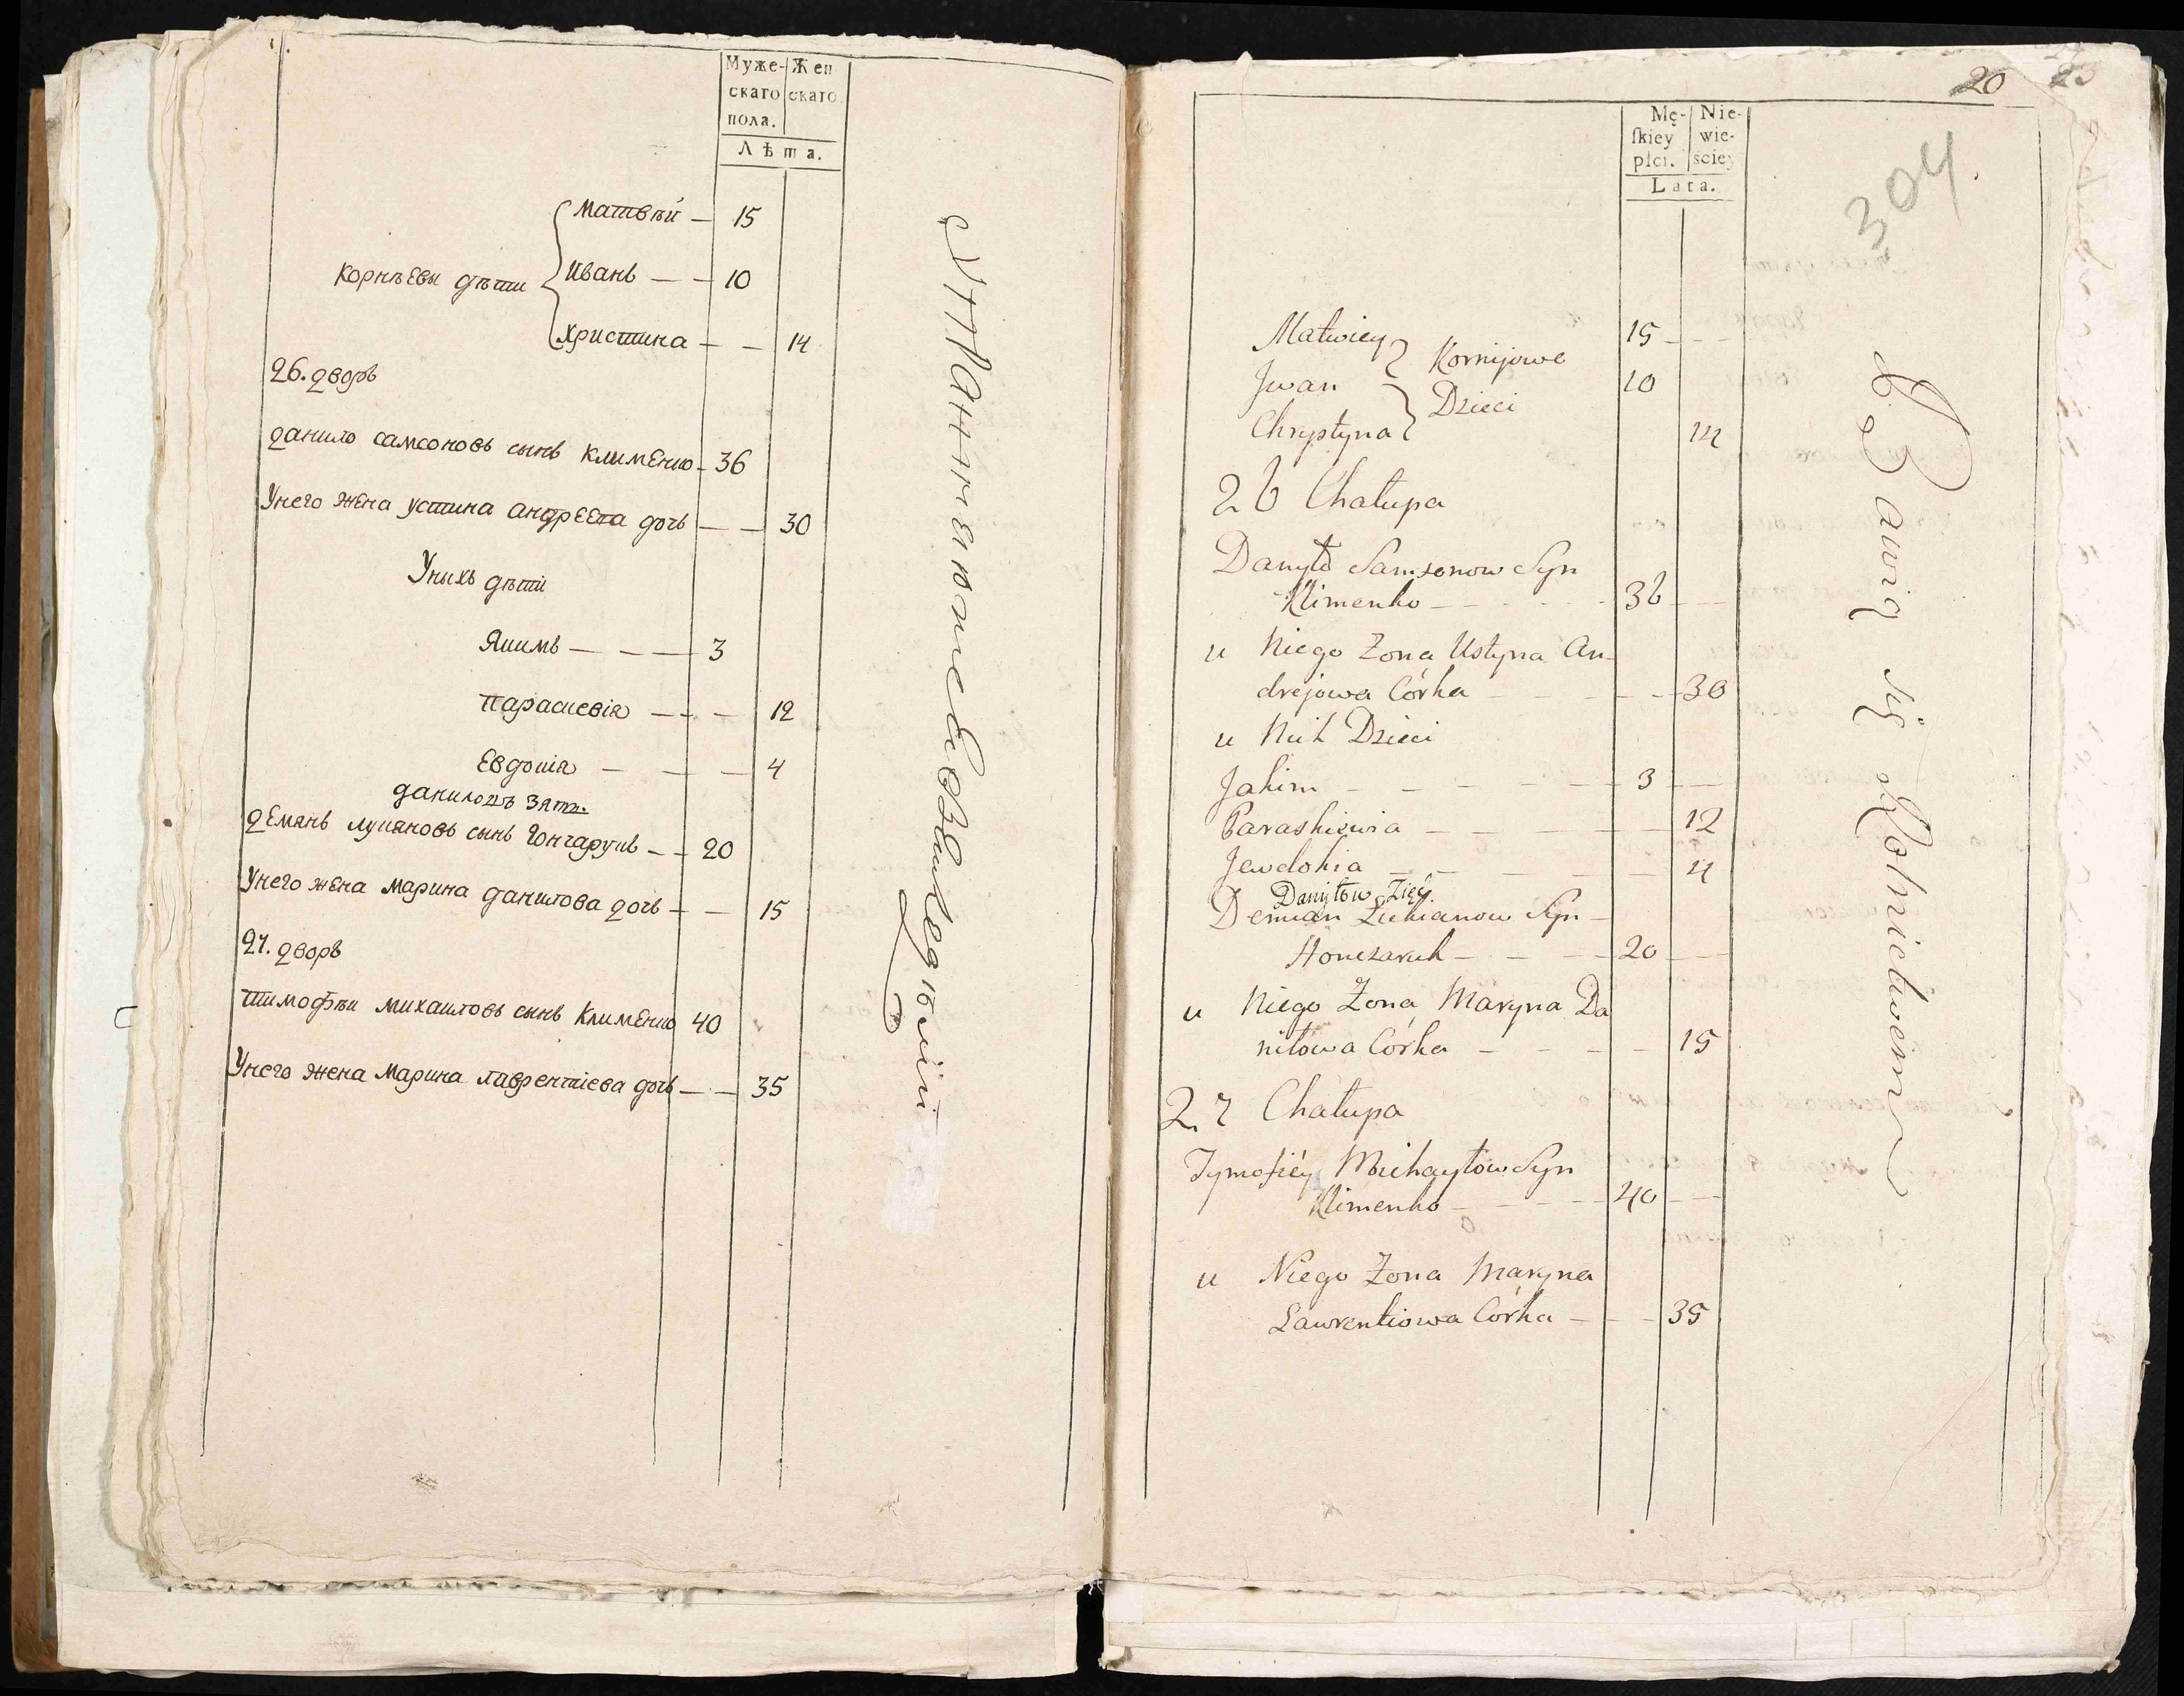 Муже- Жен
скаго скаго
пола.
Лѣта.
Матвѣй — 15
Корнѣевы дѣти Иванъ — — 10
Христина — — 14
26. дворъ
данило самсоновъ сынъ клименко — 36
Унего жена устина андрЕЕва дочь — — 30
Уныхъ дѣти
Якимъ — — — 3
Параскевія — — — 12
Евдокія — — — 4
даниловъ зять.
дЕмянъ лукяновъ сынъ Гончарукъ — — 20
Унего жена марина данилова дочь — — 15
27. дворъ
тимофѣй михаиловъ сынъ Клименко 40
Унего жена Марина лаврентіева дочь — — 35
20 23
304
Mę- Nie-
skiey wie-
płci. sciey
Lata.
Matwiey 15
Kornijowe
Jwan 10
Dzieci
Chrystyna 14
26 Chałupa
Danyło Samsonow Syn
Klimenko — 36
u Niego Zona Ustyna An-
drejowa Córka — 30
u Nich Dzieci
Jakim — 3
Paraskiewia — 12
Jewdokia — 4
Danyłow Zięć.
Demian Lukianow Syn —
Honczaruk — 20
u Niego Zona Maryna Da
niłowa Córka — 15
27 Chałupa
Tymofiéy Michayłow Syn
Klimenko — 40
u Niego Zona Maryna
Lawrentiowa Córka — 35